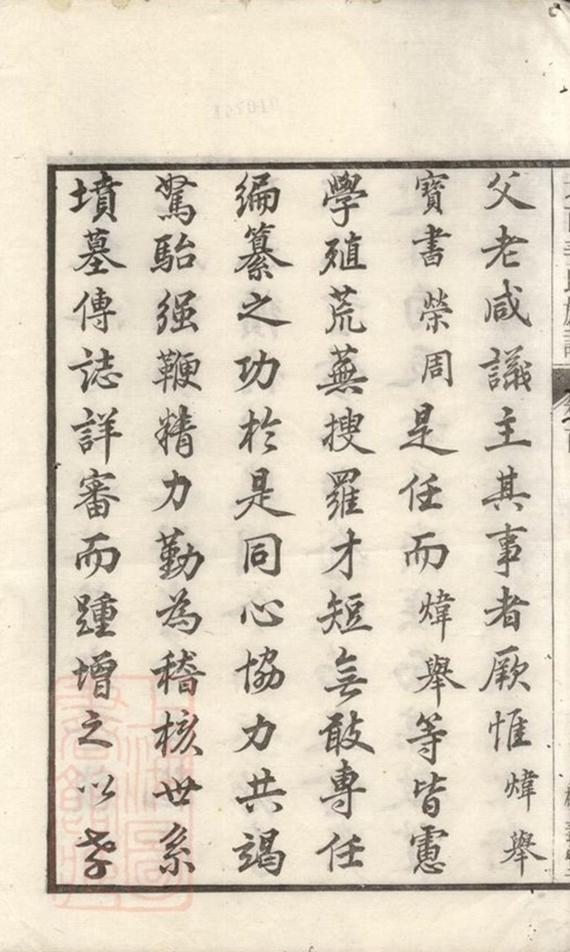 父老咸議主其事者厥惟煒舉
寶書榮周是任而煒舉等皆慮
學殖荒蕪搜羅才短無敢專任
編纂之功於是同心協力共竭
駑駘强鞭精力勤為稽核世系
墳墓傳誌詳審而踵增之以孝